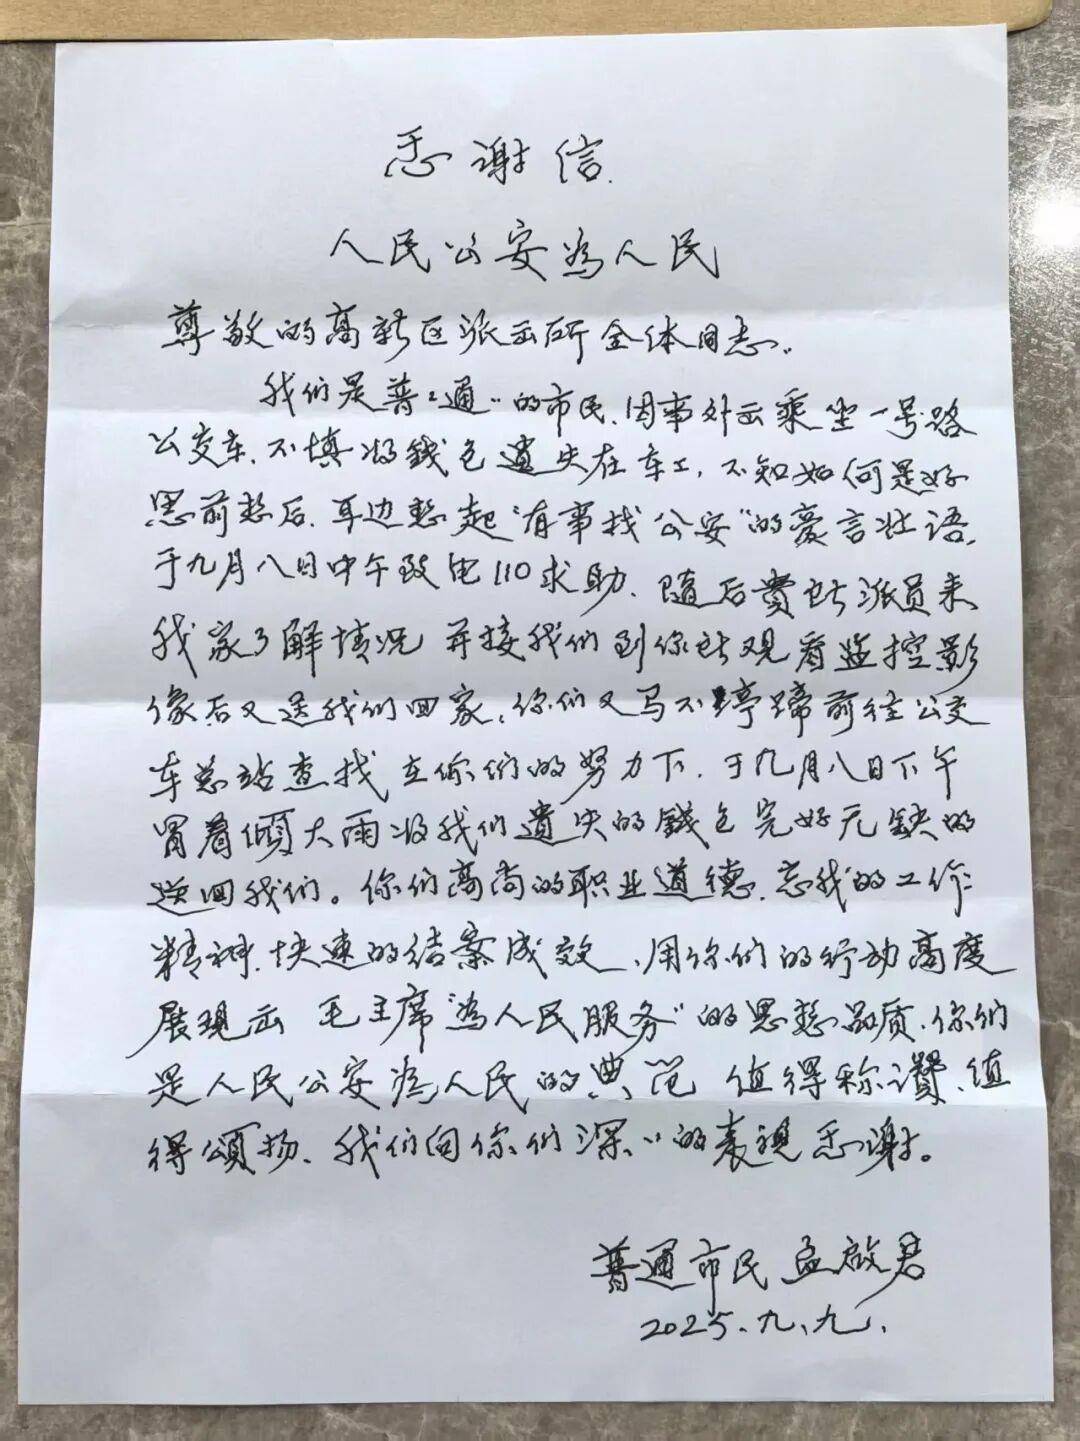 感谢信
人民公安為人民
尊敬的高新区派出所全体同志.
我们是普：通：的市民.因事外出乘坐一号路
公交车.不填将錢包遺失在车上,不知如何是好
思前想后.耳边想起“有事找公安”的豪言壮语,
于九月八日中午致电110求助.随后貴站派员来
我家了解情况并接我们到你站观看监控影
像后又送我们回家,你们又马不踭蹄前往公交
车总站查找在你们的努力下.于九月八日下午
冒着倾大雨将我们遺失的錢包完好无缺的
送回我们。你们高尚的职业道德.忘我的工作
精神.快速的结案成效、用你们的行动高度
展现出毛主席“為人民服务”的思想品质.你们
是人民公安為人民的典范 值得称讚、值
得頌扬、我们向你们深：的表現感谢。
普通市民 孟啟君
2025.九.九.